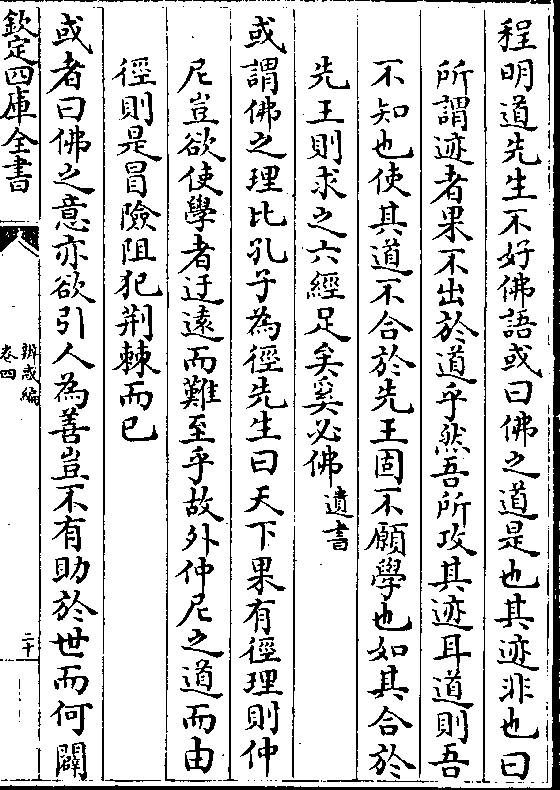 程明道先生不好佛語或曰佛之道是也其迹非也曰
所謂迹者果不出於道乎然吾所攻其迹耳道則吾
不知也使其道不合於先王固不願學也如其合於
先王則求之六經足矣奚必佛遺書
或謂佛之理比孔子為徑先生曰天下果有徑理則仲
尼豈欲使學者迂遠而難至乎故外仲尼之道而由
徑則是冒險阻犯荆棘而已
或者曰佛之意亦欲引人為善豈不有助於世而何闢
欽定四庫全書
辨惑編
卷四
二十